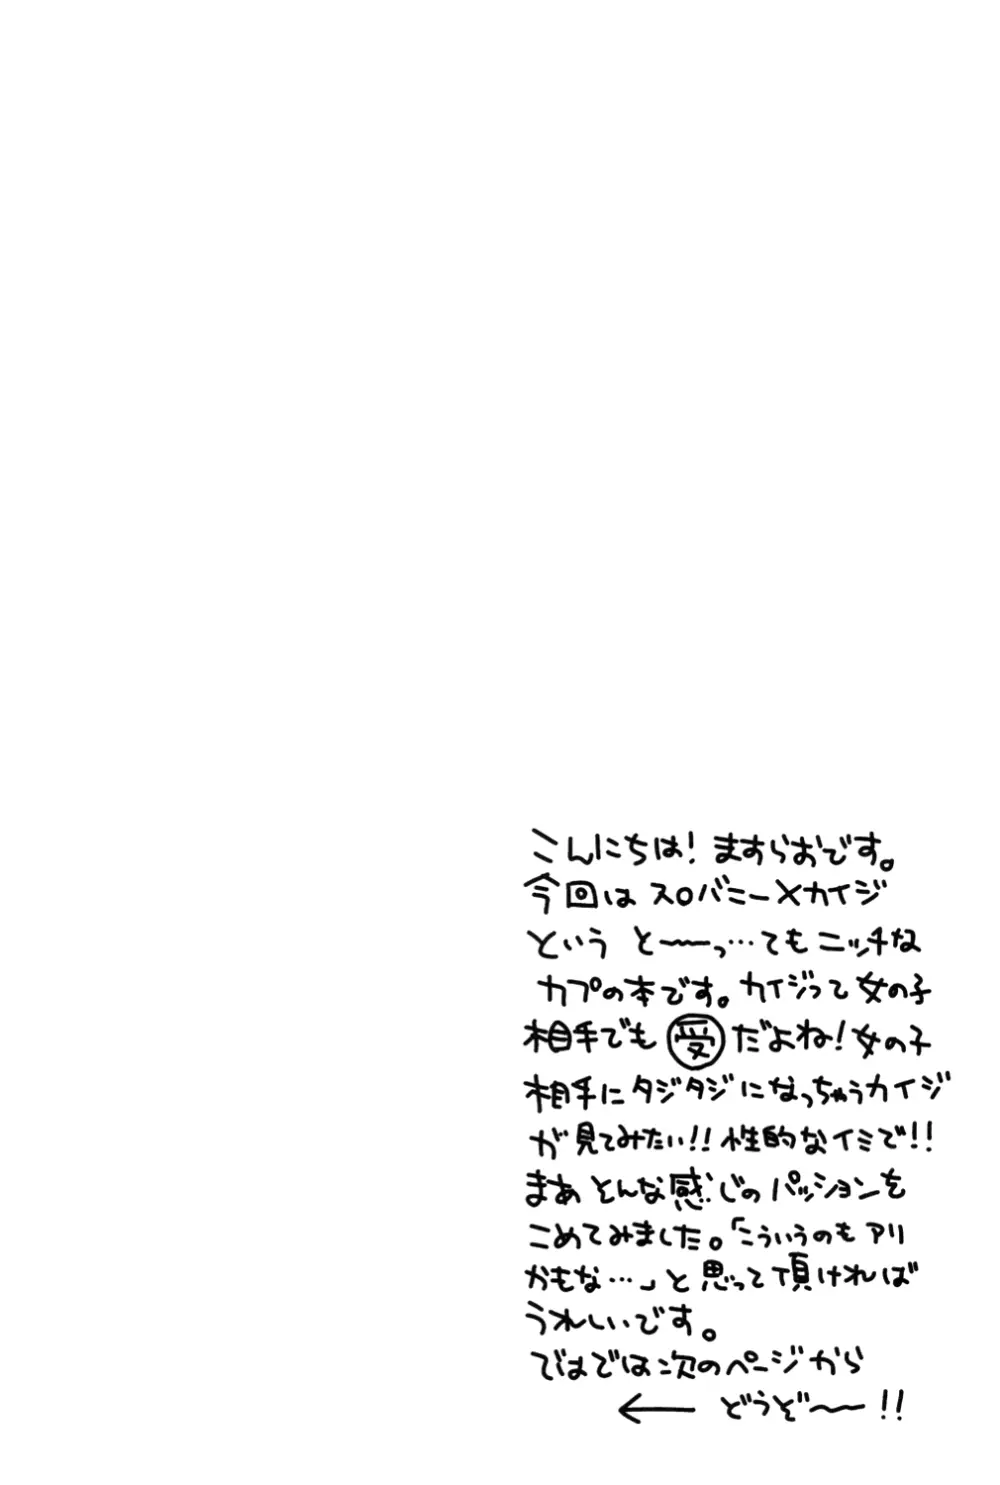 こんにちは!ますらおです。
今回はスロバニー×カイジ
という と〜〜っ…てもニッチな
カプの本です。カイジって女の子
相手でも受だよね!女の子
相手にタジタジになっちゃうカイジ
が見てみたい!!性的なイミで!!
まあそんな感じのパッションを
こめてみました。「こういうのもアリ
かもな…」と思って頂ければ
うれしいです。
ではでは次のページから
← どうぞ〜!!